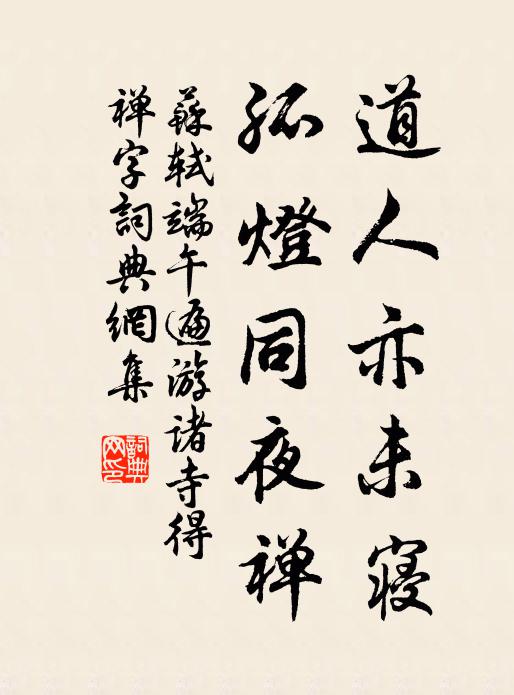 道人亦未寝
孤燈同夜禅
蘇軾端午遍游诸寺得
禅字詞典網集
詞典
网印